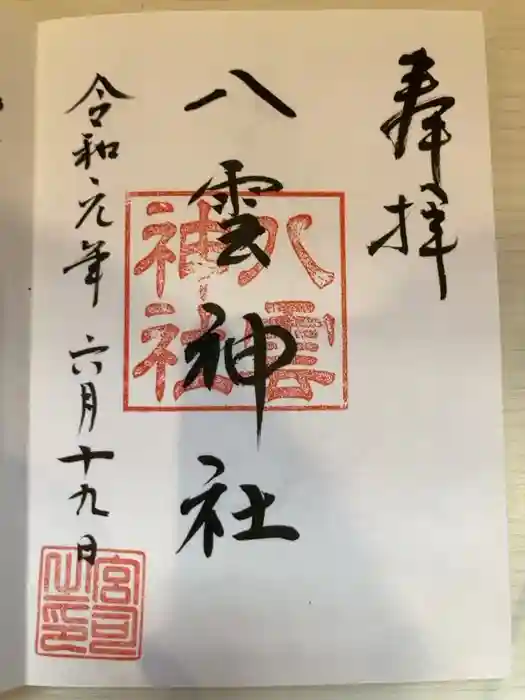 奉拝
八雲神社
八雲
神社
令和元年六月十九日
宮司
之印